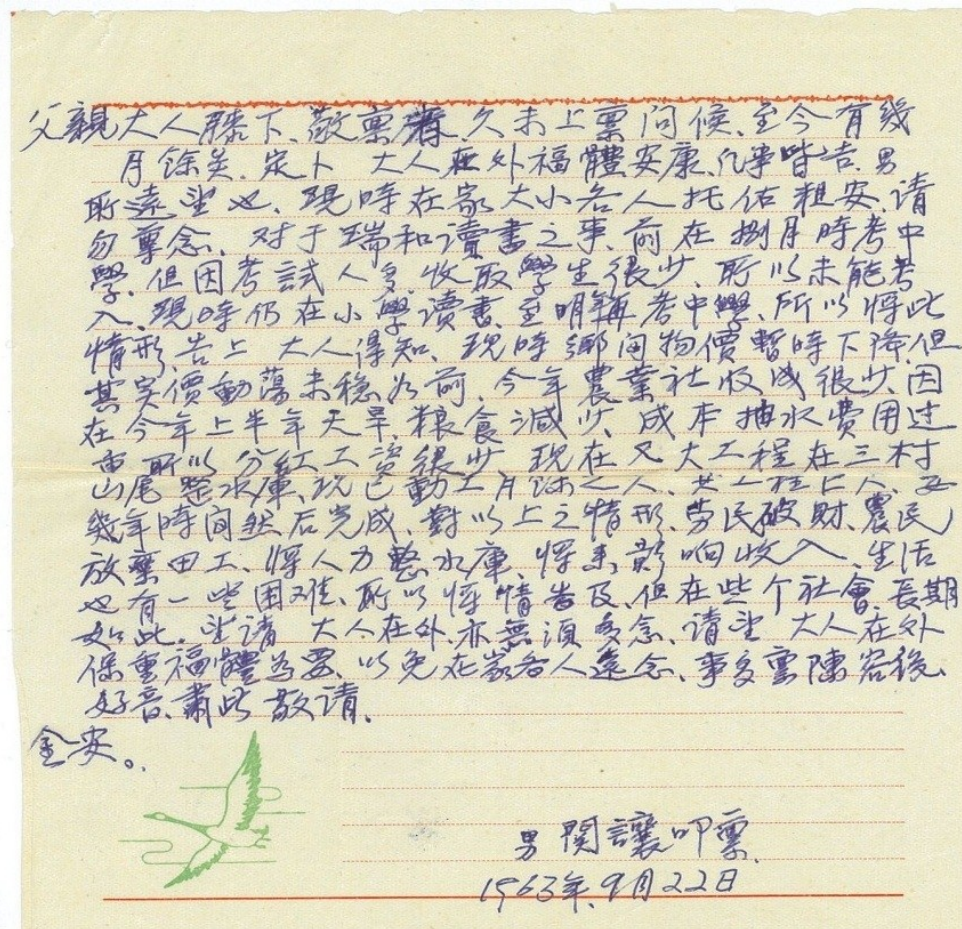 父親大人膝下、敬稟者、久未上稟問候、至今有幾
月餘矣、定卜 大人在外福體安康、凡事皆吉、男
所遠望也、現時在家大小各人托佑粗安、请
勿尊念、对于瑞和讀書之事、前在捌月時考中
學、但因考試人多、收取學生很少、所以未能考
入、現時仍在小學讀書、至明年再考中學、所以将此
情形告上 大人得知、現時鄉间物價暫時下降、但
其实價動蕩未穩如前、今年農業社收成很少、因
在今年上半年天旱、粮食減少、成本抽水费用过
重所以分紅工资很少、現在又大工程在三村
山尾整水庫、現已動工月馀之人、共上人、
幾年時间然后完成、對以上之情形、劳民破財、農民
放棄田工、将人力整水庫、将来影响收入、生活
也有一些困难、所以将情告及、但在些个社會、長期
如此、望请 大人在外、亦無須多念、请望 大人在外
保重福體為要、以免在家各人遠念、事多稟陳容後、
好音、肅此敬请、
金安。
男関讓叩稟
1963年、9月22日